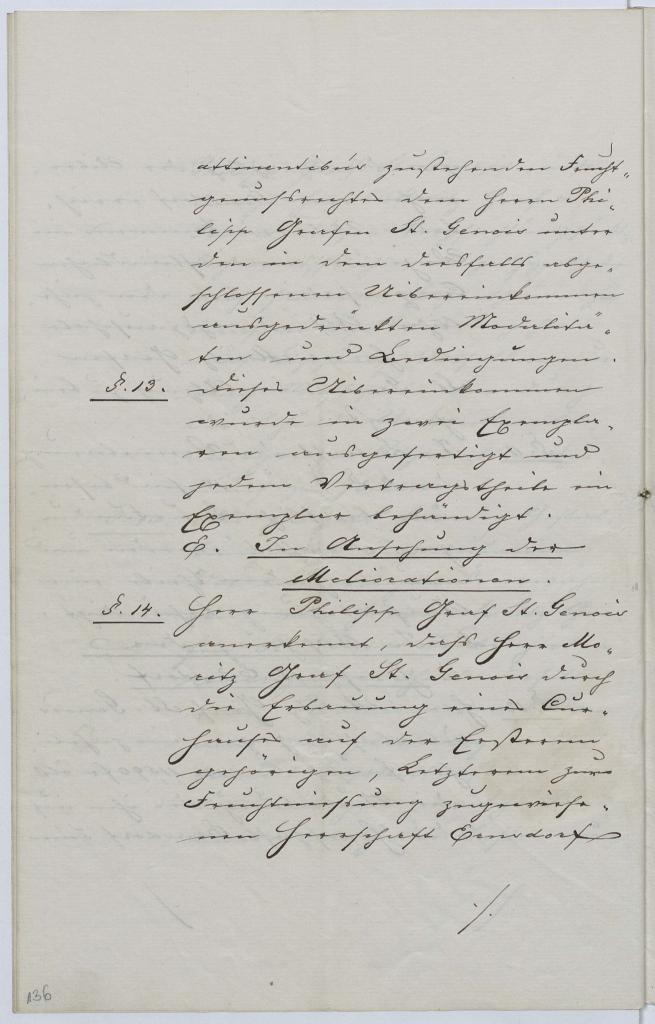 attinentibus zustehenden Frucht-
genußrechtes dem Herrn Phi-
lipp Grafen St. Genois unter
den in dem diesfalls abge-
schlossenen Uibereinkommen
ausgedrückten Modalitä-
ten und Bedingungen.
§. 13. Dieses Uibereinkommen
wurde in zwei Exempla-
ren ausgefertigt und
jedem Vertragstheile ein
Exemplar behändigt.
E. In Ansehung der
Meliorationen.
§. 14. Herr Philipp Graf St. Genois
anerkennt, daß Herr Mo-
ritz Graf St. Genois durch
die Erbauung eines Cur-
hauses auf der Ersterem
gehörigen, Letzterem zur
Fruchtnießung zugewiese-
nen Herrschaft Ernsdorf
./.
136